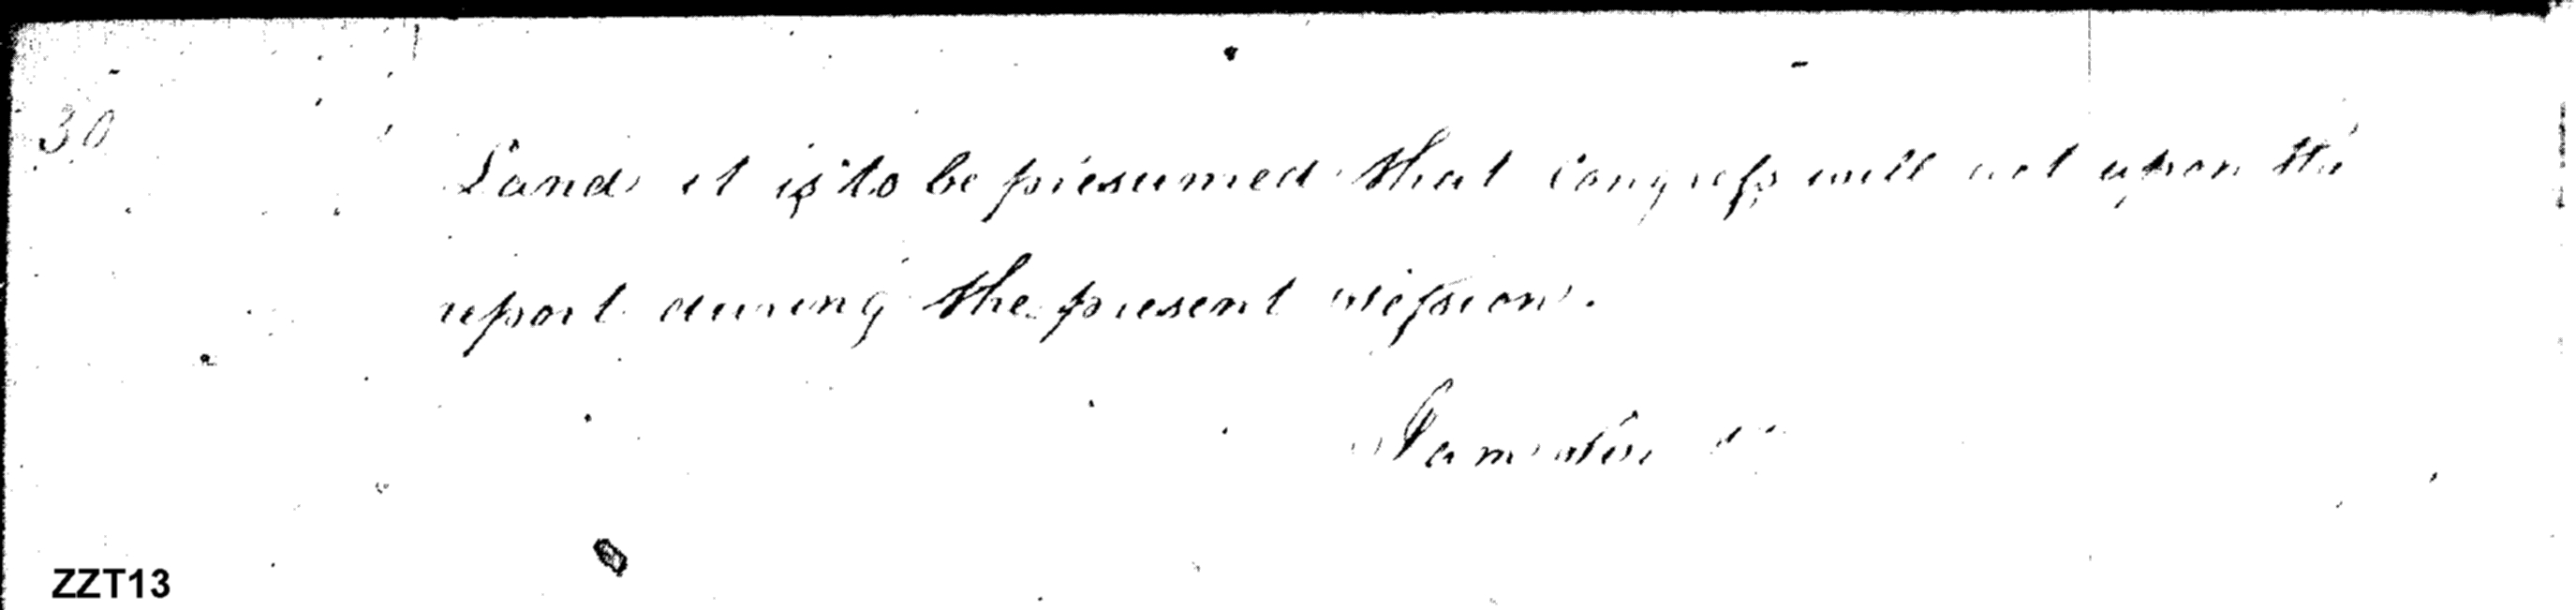 30
Land it is to be presumed that Congress will act upon the
report during the present session.
I am
ZZT13